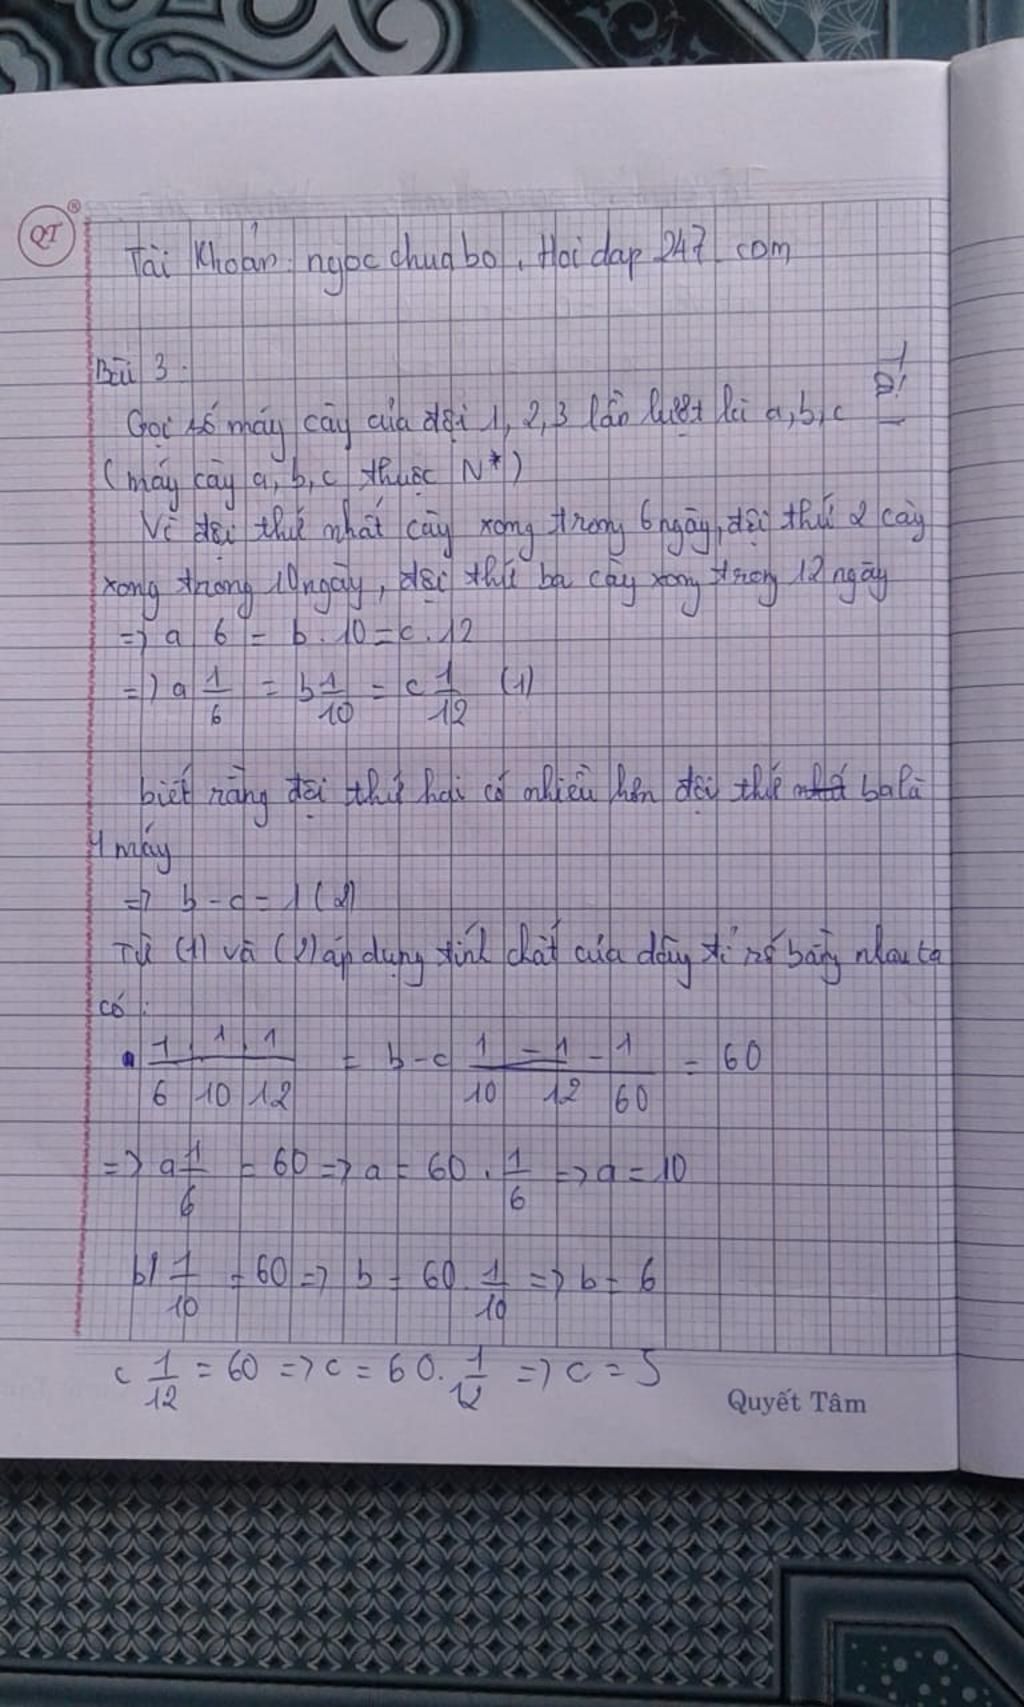 QT ®
Tài Khoản: ngocchuabo. Hoidap247.com
Bài 3:
Gọi số máy cày của đội 1, 2, 3 lần lượt là a, b, c
(máy cày a, b, c thuộc N*)
Vì đội thứ nhất cày xong trong 6 ngày, đội thứ 2 cày
xong trong 10 ngày, đội thứ ba cày xong trong 12 ngày
=> a 6 = b . 10 = c . 12
=> a 1/6 = b 1/10 = c 1/12 (1)
biết rằng đội thứ hai có nhiều hơn đội thứ ba là
1 máy
=> b - c = 1 (2)
Từ (1) và (2) áp dụng tính chất của dãy tỉ số bằng nhau ta
có:
1/6 1/10 1/12 = b - c 1/10 - 1/12 - 1/60 = 60
=> a 1/6 = 60 => a = 60 . 1/6 => a = 10
b 1/10 = 60 => b = 60 . 1/10 => b = 6
c 1/12 = 60 => c = 60 . 1/12 => c = 5
Quyết Tâm